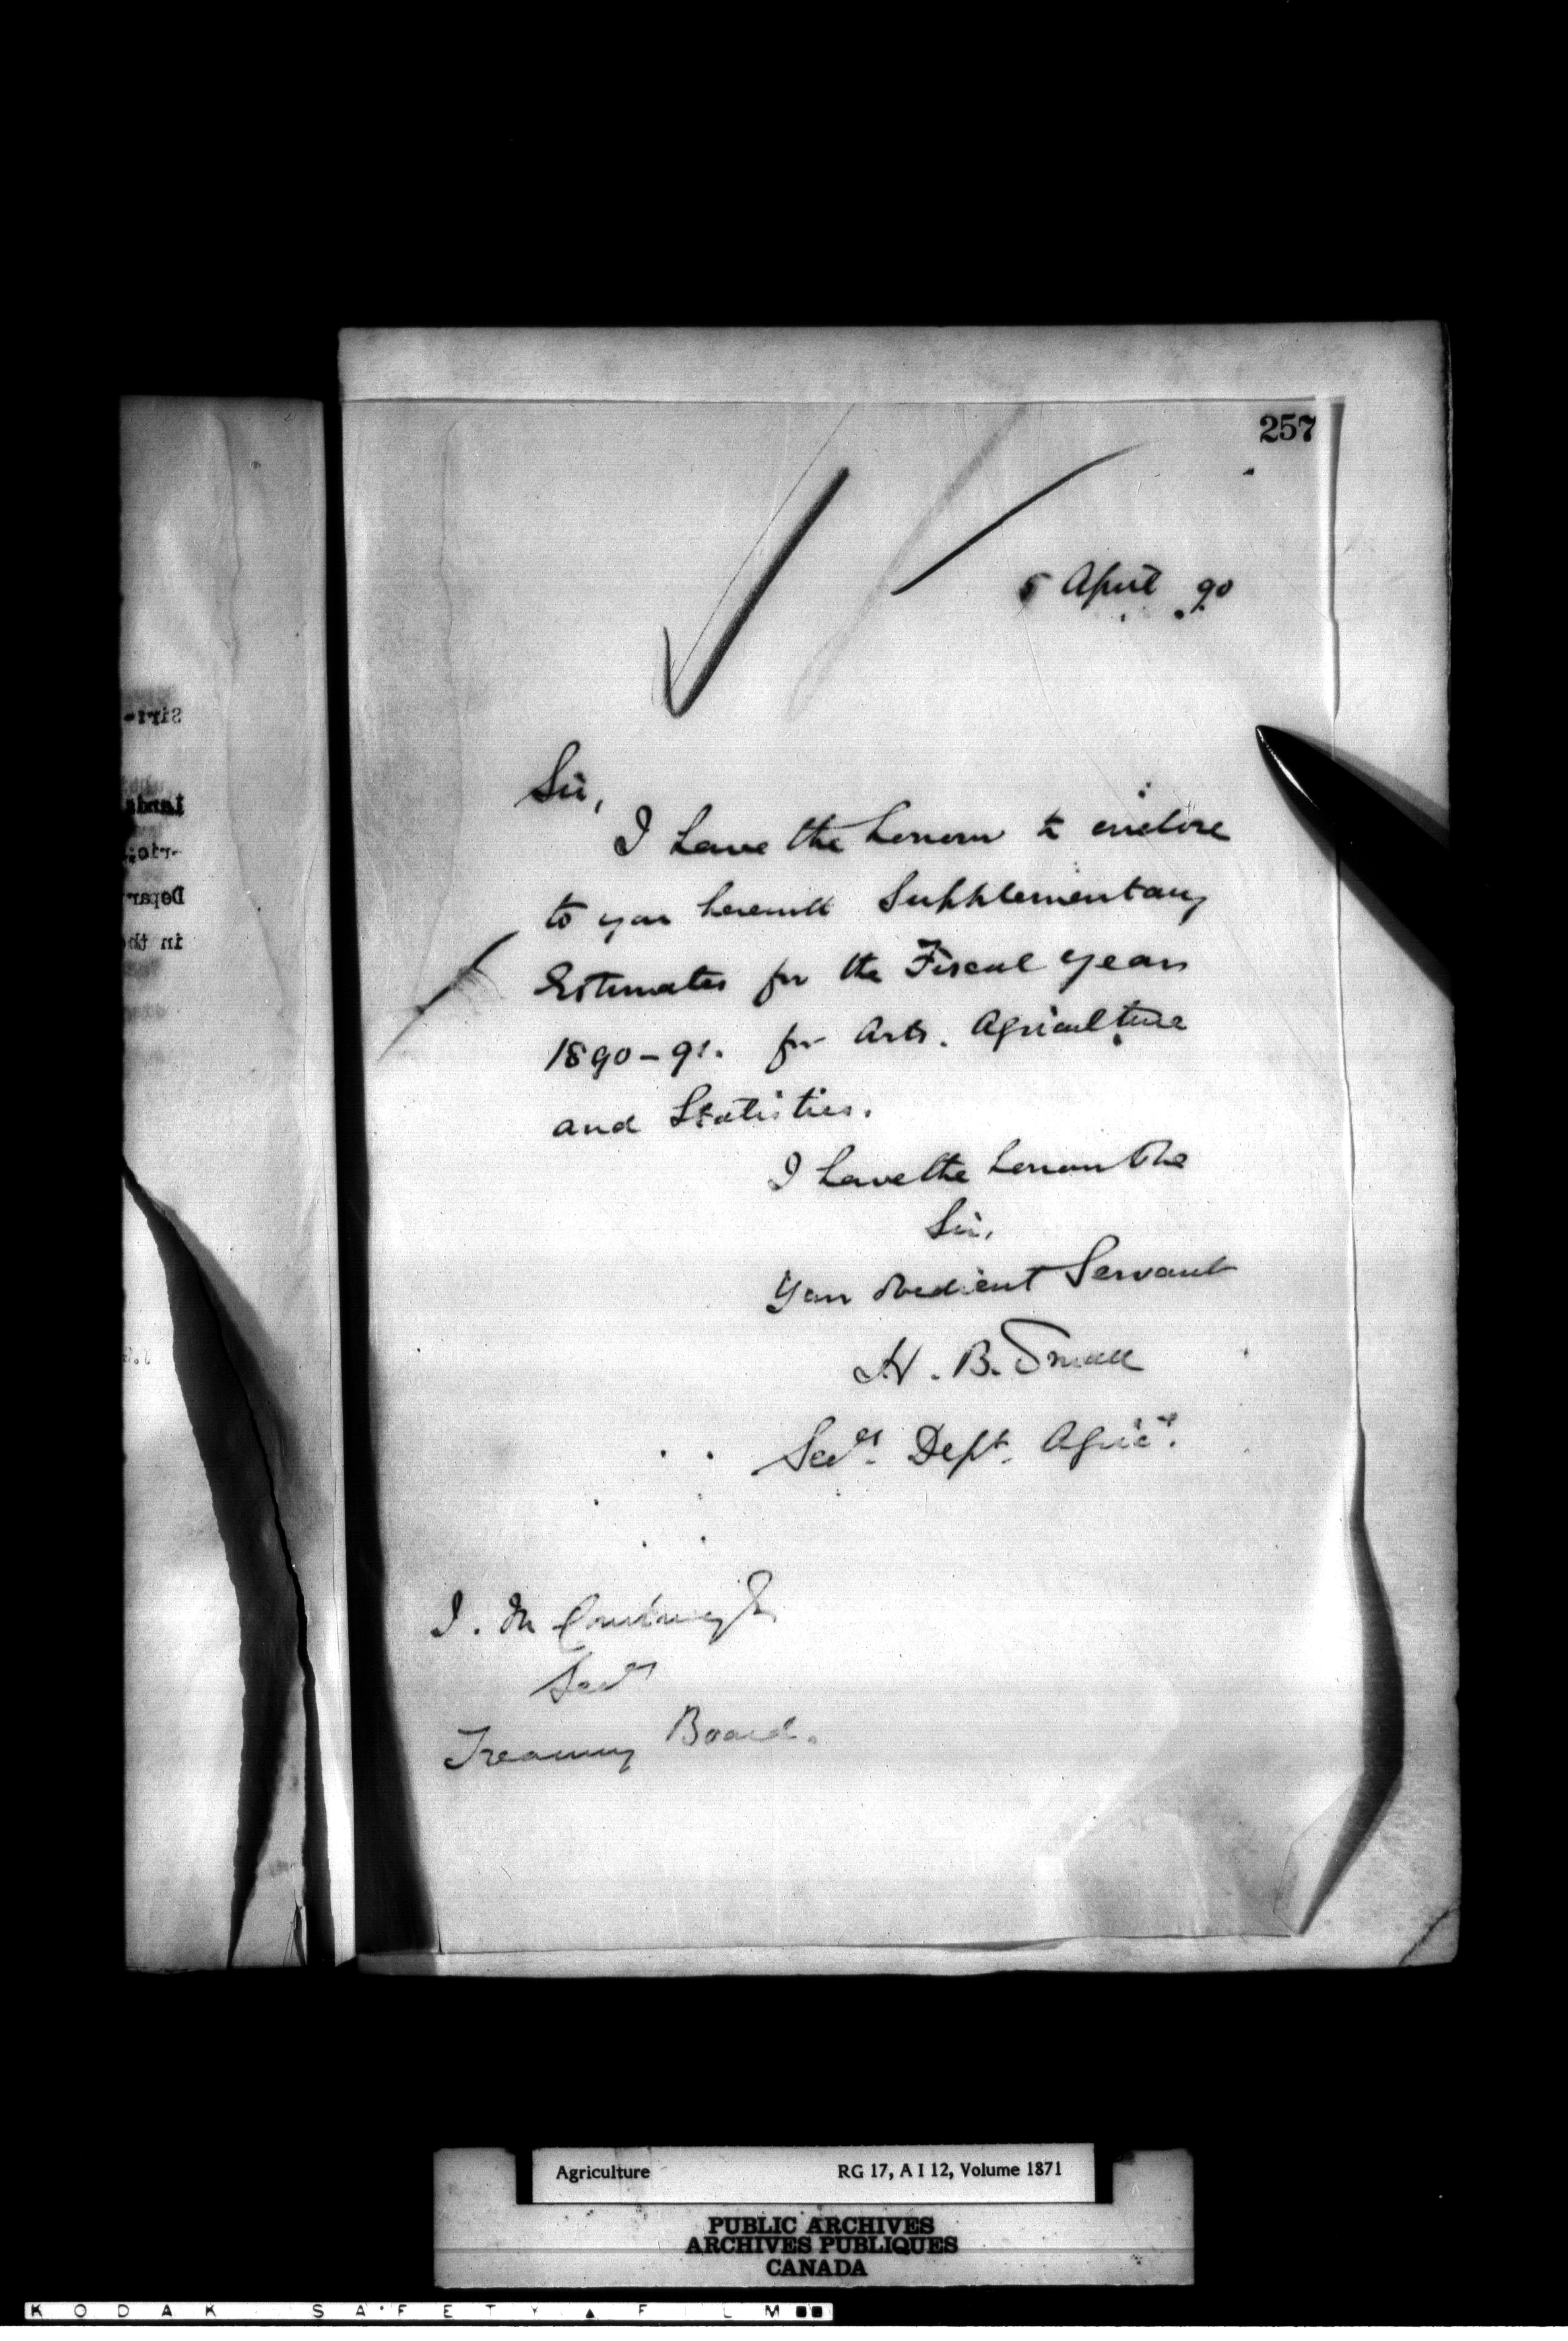 257
5 April 90
Sir,
I have the honour to enclose
to you herewith Supplementary
Estimates for the Fiscal year
1890-91. for Arts. Agriculture
and Statistics.
I have the honour to be
Sir,
Your obedient Servant
H. B. Small
Secy. Dept. Agric.
J. M Courtney
Secy
Treasury Board.
Agriculture RG 17, A I 12, Volume 1871
PUBLIC ARCHIVES
ARCHIVES PUBLIQUES
CANADA
KODAK SAFETY ▲ FILM